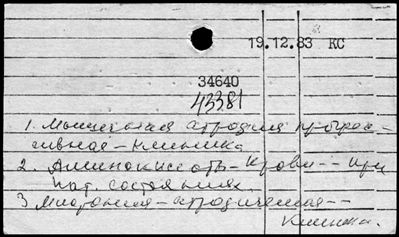 19.12.83 КС
34640
43381
1. Мышечная атрофия прогрес-
сивная - Клиника
2. Аминокисоты - крови -- при
пат. состояниях.
3 Миотония - атрофическая --
Клиника.